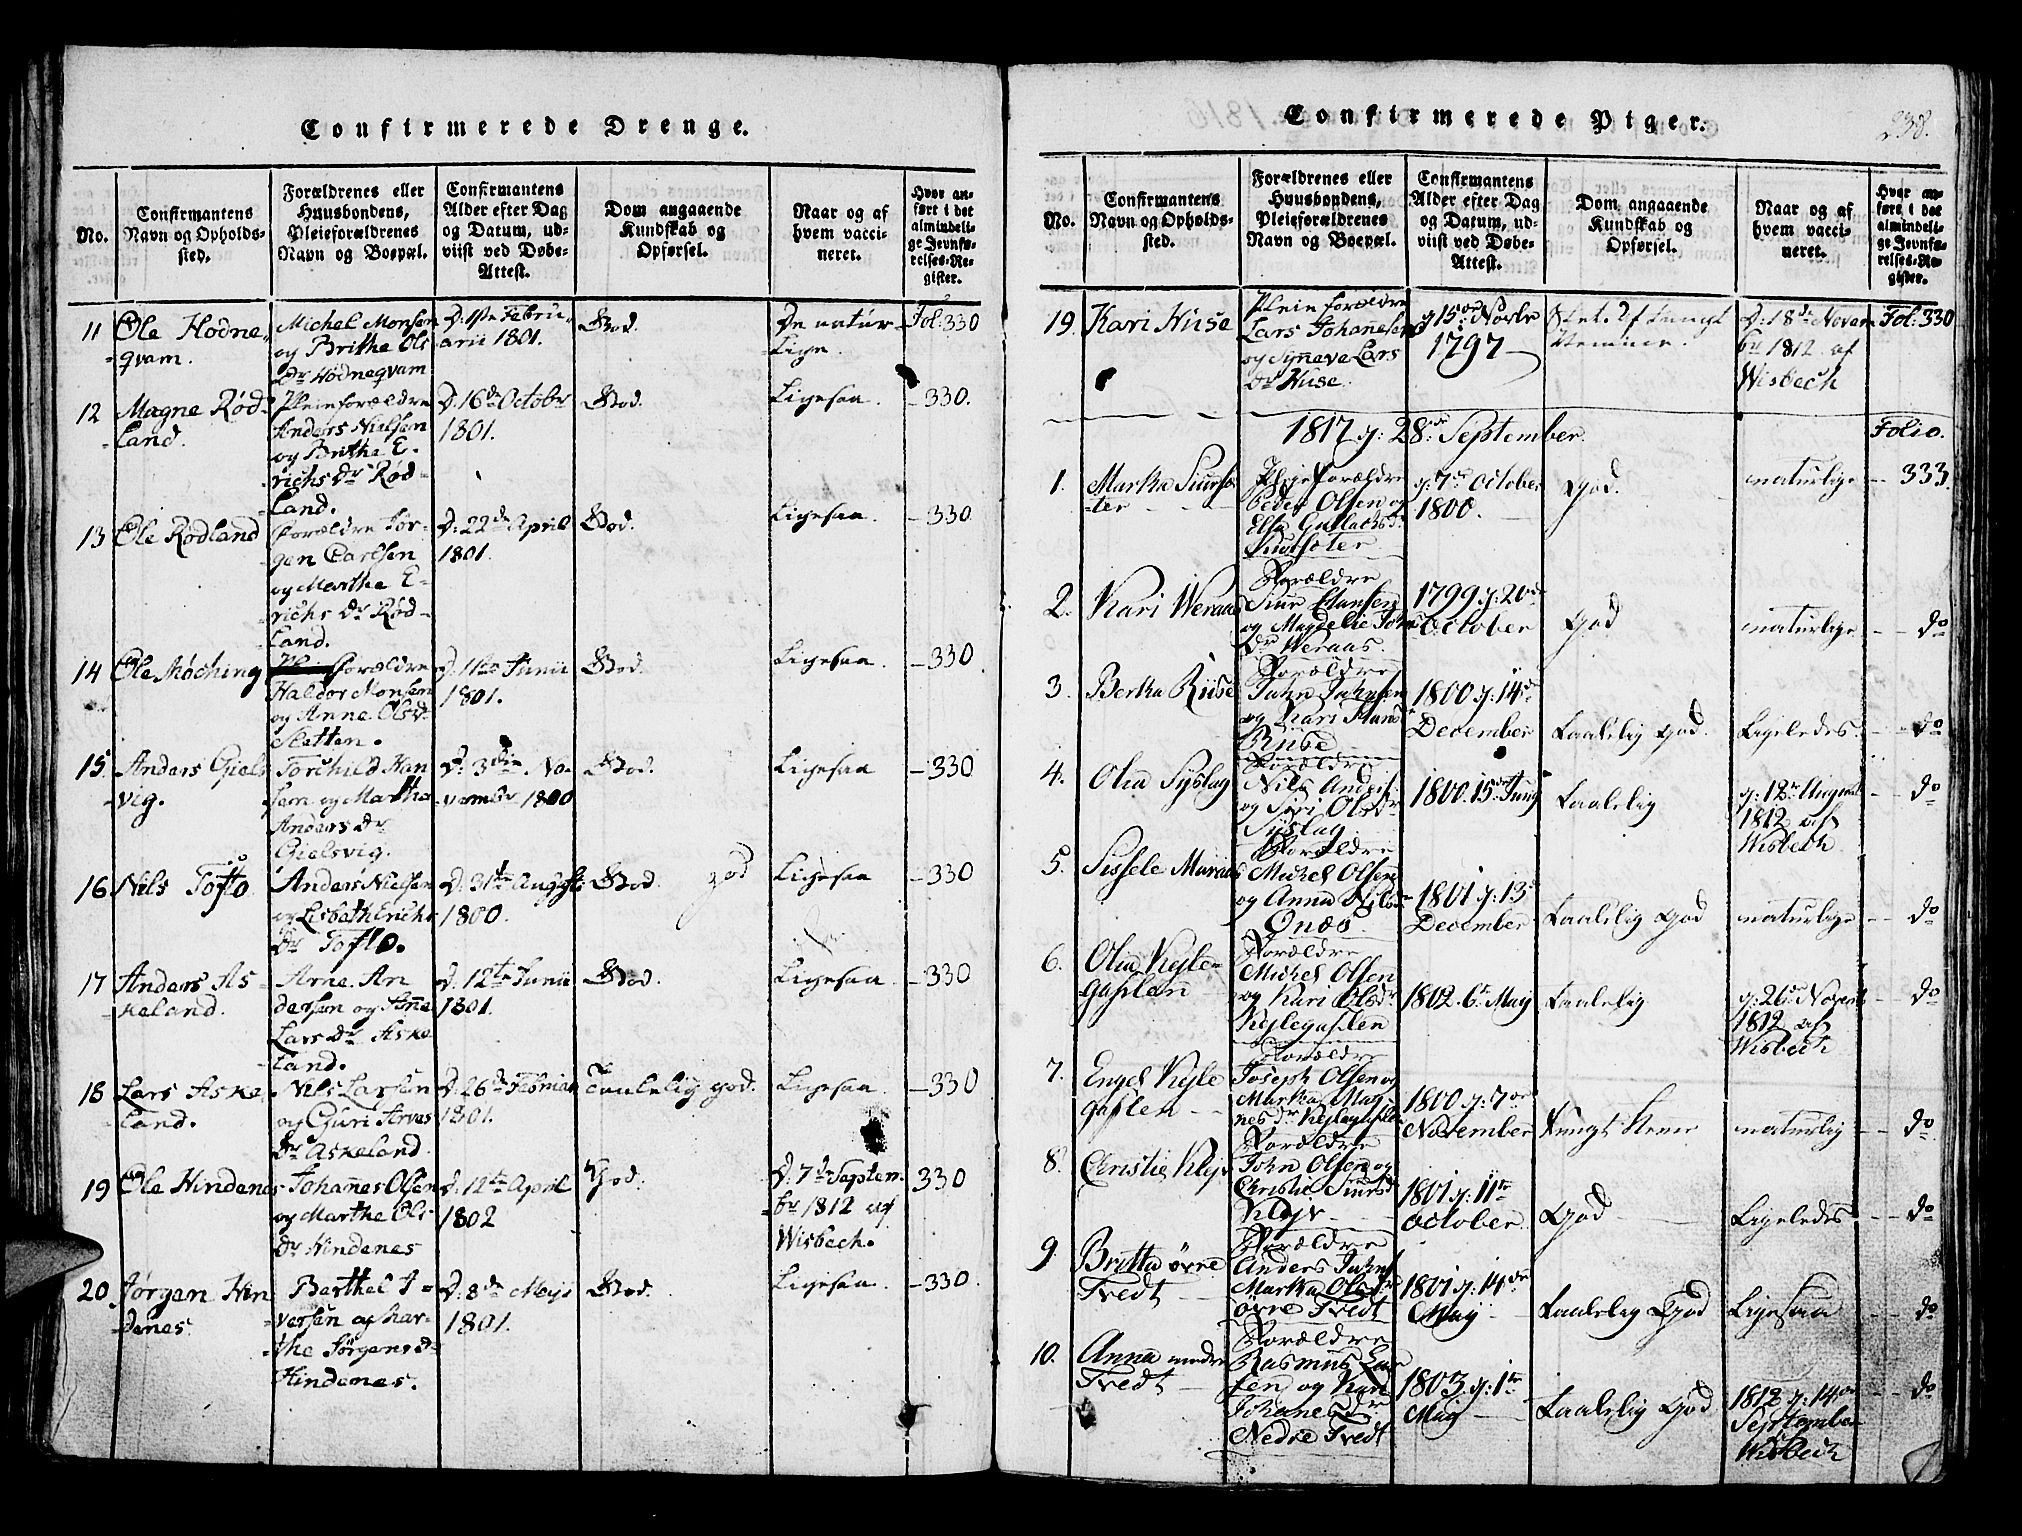 Confirmerede Drenge.
No.
Confirmantens
Navn og Opholds-
sted.
Forældrenes eller
Huusbondens,
Pleieforældrenes
Navn og Boepæl.
Confirmantens
Alder efter Dag
og Datum, ud-
viist ved Døbe-
Attest.
Dom angaaende
Kundskab og
Opførsel.
Naar og af
hvem vacci-
neret.
Hvor an-
ført i det
almindeli-
ge Jevnfø-
relses-Re-
gister.
11
Ole Hodne-
qvam.
Michel Monsen
og Brithe Ols
Dr Hodneqvam
D: 1ste Febru-
arii 1801.
God.
De natur-
lige.
Fol: 330
12
Magne Rød-
land.
Pleieforældre
Anders Nielsen
og Brithe E-
richs Dr Rød-
land.
D. 16de Octobr
1801.
God.
Ligesaa
330.
13
Ole Rödland
Forældre Jør-
gen Carlsen
og Marthe E-
richs Dr Rød-
land.
D: 22de April
1801.
God.
Ligesaa.
330
14
Ole Møching
forældre
Haldor Monsen
og Anne Olsd.
Sletten.
D. 11te Junii
1801.
God.
Ligesaa.
330
15
Anders Giels-
vig.
Torchild Han
sen og Martha
Anders Dr
Gielsvig.
D: 3die No-
vembr 1800
God.
Ligesaa
330
16
Nils Tofto
Anders Nielsen
og Lisbeth Erichs
Dr Tofto.
D. 31te Augusti
1800.
God. god
Ligesaa
330
17
Anders As-
keland.
Arne An
dersen og Anne
Lars Dr Aske
land.
D. 12te Junii
1801.
God.
Ligesaa.
330
18
Lars Aske
land.
Nils Larsen
og Guri Arves
Dr Askeland.
D. 26de Februar
1801.
Taalelig god.
Ligesaa
330
19
Ole Hindenes
Johannes Olsen
og Marthe Ols
Dr Hindenes
D. 12te April
1802
God.
D. 7de Septem
br 1812 af
Wisbech.
330
20
Jørgen Hin
denes.
Berthel I-
versen og Mar-
the Jørgens D.
Hindenes.
D. 8de Maji
1801.
God.
Ligesaa.
330
Confirmerede Piger.
238.
No.
Confirmantens
Navn og Opholds-
sted.
Forældrenes eller
Huusbondens,
Pleieforældrenes
Navn og Boepæl.
Confirmantens
Alder efter Dag
og Datum, ud-
viist ved Døbe-
Attest.
Dom angaaende
Kundskab og
Opførsel.
Naar og af
hvem vacci-
neret.
Hvor an-
ført i det
almindeli-
ge Jevnfø-
relses-Re-
gister.
19.
Kari Huse
Pleieforældre
Lars Johanesen
og Synneva Lars
Dr Huse.
15de Novbr
1797
Slet.
D: 18de Novem
br 1812 af
Wisbech
Fol: 330
1817 d: 28de September.
Folio.
1.
Martha
Plejeforældre
Peder Olsen og
d: 7de October
1800.
God.
naturlige
333
2.
Kari Weraas
Forældre
Siur
og Magdelie John
Dr Weraas.
1799 d: 20de
October
God
naturlige
do
3.
Bertha Riise
Forældre
John Johnsen
og Kari Hans
Riise
1800 d: 14de
December
Taalelig God.
Ligeledes.
do
4.
Olia Syslag
Forældre
Nils
og Siri Olsdr
Syslag
1800. 15de Juny
Taalelig
d: 12te August
1812 af
Wisbech
do
5.
Sissele
Forældre
Michel Olsen
og Anna Nilsdr
Onæs.
1801 d: 13de
December
Taalelig God
naturlige
do
6.
Olia Kejle-
gaslen
Forældre
Michel Olsen
og Kari Olsdr
Kejlegaslen
1802. 6te May
Taalelig
d: 26de Novemb
1812 af
Wisbech
do
7.
Engel Kejle
gaslen
Forældre
Joseph Olsen og
Martha Mag-
nes dr Kejlegaslen
1800 d: 7de
November
naturlig
do
8.
Christie Klejv
Forældre
John Olsen og
Christie Siursd.
Klejv
1801 d: 11te
October
God
Ligeledes
do
9
Britta øvre
Tvedt
Forældre
Anders Johns
Martha Olsdr
øvre Tvedt
1801 d: 14de
May
Taalelig God
Ligesaa
do
10.
Anna nedre
Tvedt
Forældre
Rasmus Lar
sen og Kari
Johanesdr
Nedre Tvedt
1803 d: 1te
May
Taalelig God
1812 d: 14de
September
Wisbech
do